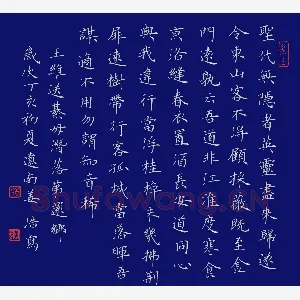 聖代無隱者英靈盡來歸遂
令東山客不得顧採薇既至金
門遠孰云吾道非江淮度寒食
京洛縫春衣置酒長安道同心
與我違行當浮桂棹未幾拂荊
扉遠樹帶行客孤城當落暉吾
謀適不用勿謂知音稀
王維送綦毋潛落第還鄉
歲次丁亥初夏遼南
Shufawang.cn